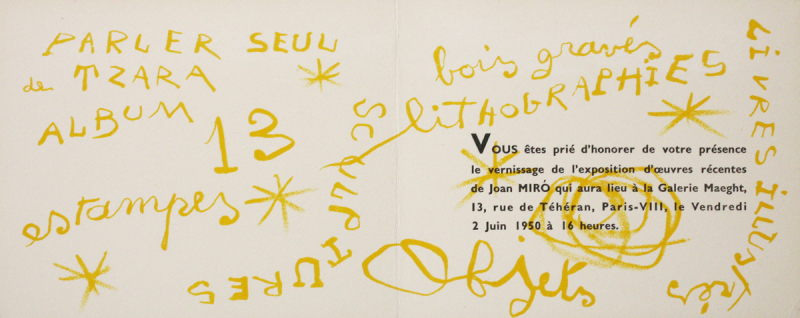 PARLER SEUL
de TZARA
ALBUM 13
estampes
SCULPTURES
bois gravés
lithographies
LIVRES ILLUSTrés
Objets
VOUS êtes prié d'honorer de votre présence
le vernissage de l'exposition d'œuvres récentes
de Joan MIRÓ qui aura lieu à la Galerie Maeght,
13, rue de Téhéran, Paris-VIII, le Vendredi
2 Juin 1950 à 16 heures.